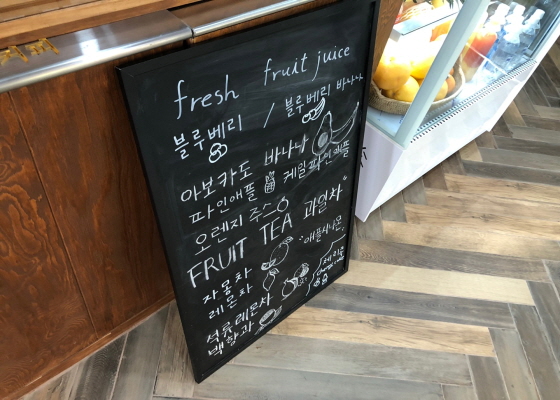 fresh fruit juice
블루베리 / 블루베리 바나나
아보카도 바나나
파인애플 케일파인애플
오렌지 주스
FRUIT TEA 과일차
자몽차 "애플시나몬"
레몬차
석류레몬차
백향과